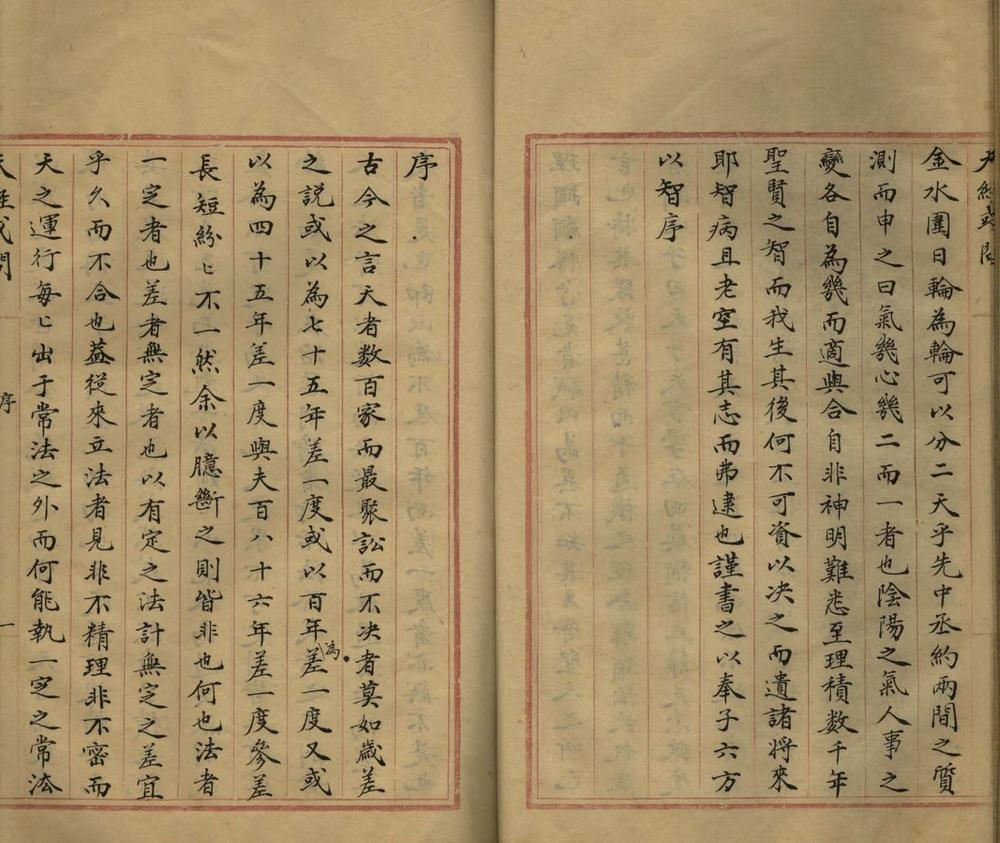 天經或問
金水圍日輪為輪可以分二天乎先中丞約兩間之質
測而申之曰氣幾心幾二而一者也陰陽之氣人事之
變各自為幾而適與合自非神明難悉至理積数千年
聖賢之智而我生其後何不可資以决之而遺諸將來
耶智病且老空有其志而弗逮也謹書之以奉子六方
以智序
序
古今之言天者数百家而最聚訟而不决者莫如歲差
之説或以為七十五年差一度或以百年差二度又或
為
以為四十五年差一度與夫百八十六年差一度參差
長短紛〻不一然余以臆斷之則皆非也何也法者
一定者也差者無定者也以有定之法計無定之差宜
乎久而不合也葢從來立法者見非不精理非不密而
天之運行每〻出于常法之外而何能執一定之常法
天經或問
序
一